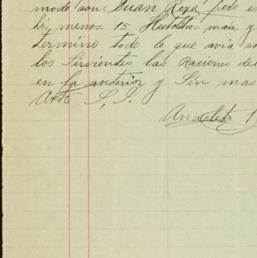 mode con Juan Reza, pero es
hi, menos 15 Hectolitros maiz y
termino todo lo que avia co
los Sirvientes las Raciones de
en la anterior y Sin mas
Atto S, S.
Anacleto